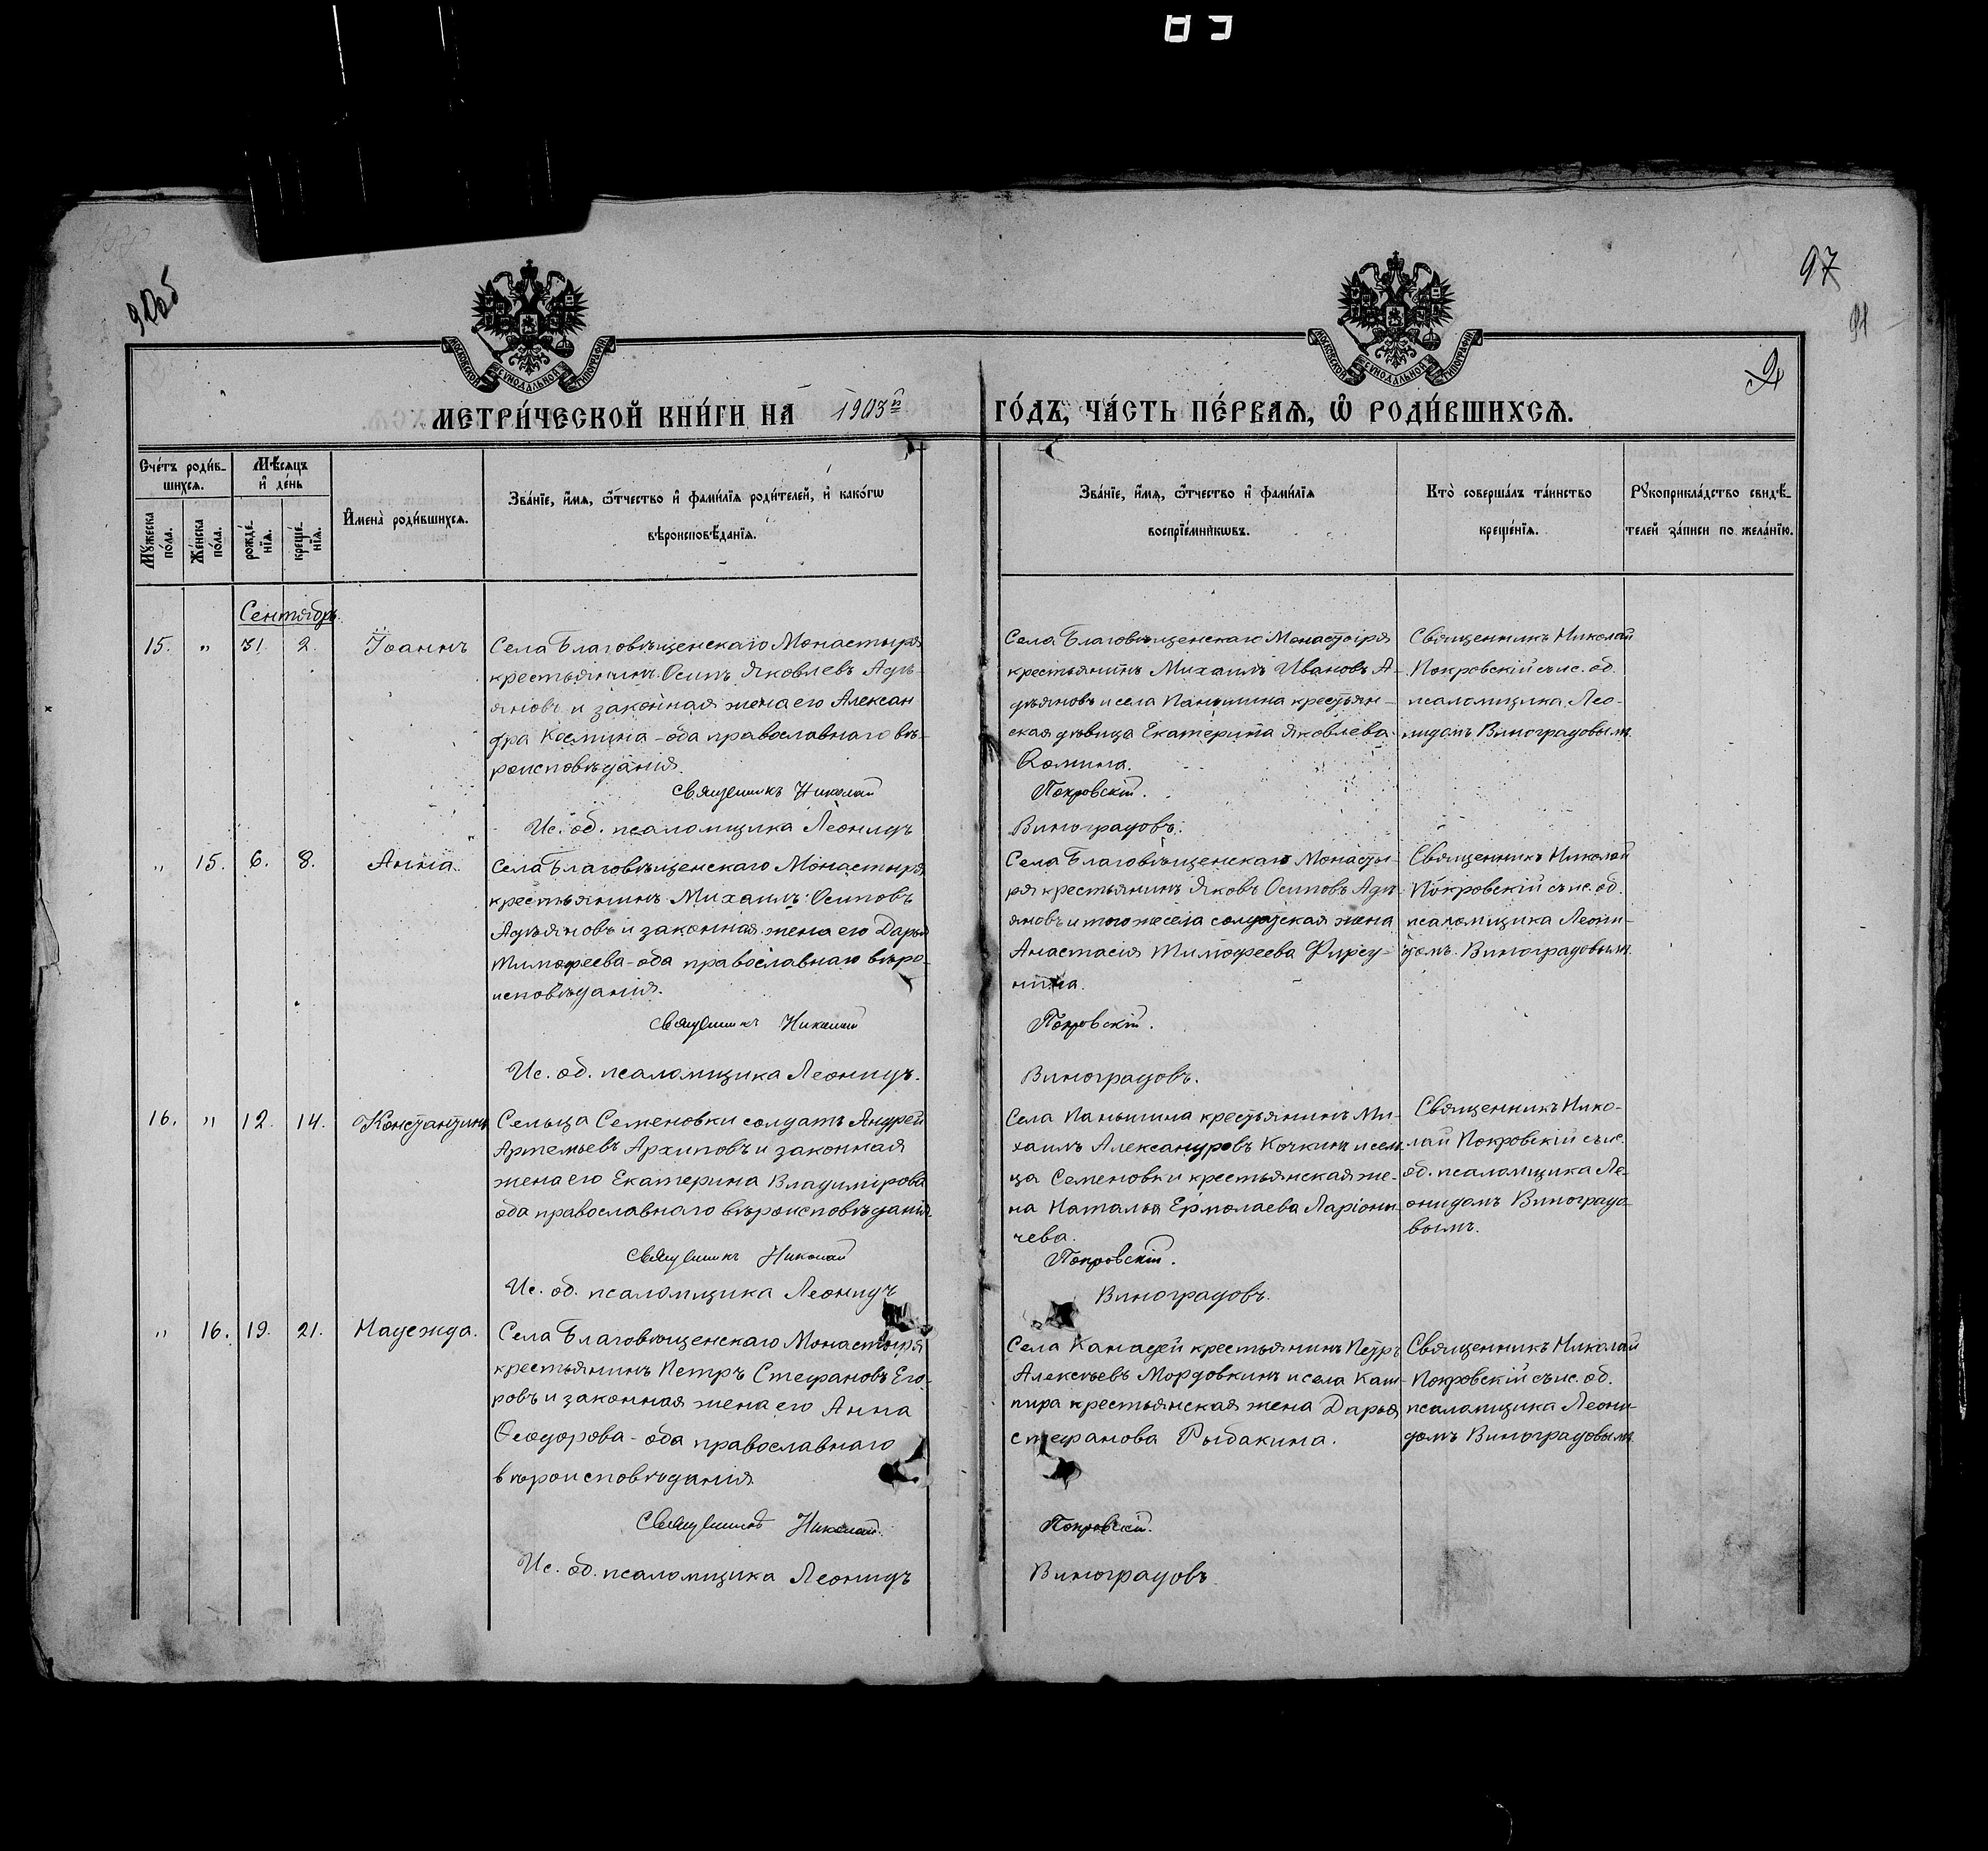 97
9
МЕТРИ́ЧЕСКОЙ КНИ́ГИ НА 1903й ГО́ДЪ, ЧА́СТЬ ПЕ́РВАѦ, Ѡ҆ РОДИ́ВШИХСѦ.
Сче́тъ роди́в-
шихсѧ.
Мѣ́сѧцъ
и҆ де́нь
Мꙋ́жеска по́ла.
Же́нска по́ла.
рожде́-
нїѧ.
креще́-
нїѧ.
И҆мена̀ роди́вшихсѧ.
Зва́нїе, и҆́мѧ, ѻ҆́тчество и҆ фами́лїѧ роди́телей, и҆ како́гѡ
вѣроисповѣ́данїѧ.
Зва́нїе, и҆́мѧ, ѻ҆́тчество и҆ фами́лїѧ
воспрїе́мникѡвъ.
Кто̀ соверша́лъ та́инство
креще́нїѧ.
Рꙋкоприкла́дство свидѣ́-
телей за́писи по жела́нїю.
Сентябрь.
15. " 31. 2. Іоаннъ
Села Благовѣщенскаго Монастыря
крестьянинъ Осипъ Яковлевъ Адъ-
яновъ и законная жена его Алексан
дра Космина - оба православнаго вѣ-
роисповѣданія.
Священникъ Николай
Ис. об. псаломщика Леонидъ
Села Благовѣщенскаго Монастыря
крестьянинъ Михаилъ Ивановъ А-
дъяновъ и села Паньшина крестьян-
ская дѣвица Екатерина Яковлева
Комина.
Покровскій.
Виноградовъ.
Священникъ Николай
Покровскій съ ис. об.
псаломщика Лео-
нидомъ Виноградовымъ
" 15. 6. 8. Анна.
Села Благовѣщенскаго Монастыря
крестьянинъ Михаилъ Осиповъ
Адъяновъ и законная жена его Дарья
Тимофеева - оба православнаго вѣро-
исповѣданія.
Священникъ Николай
Ис. об. псаломщика Леонидъ.
Села Благовѣщенскаго Монасты-
ря крестьянинъ Яковъ Осиповъ Адъ-
яновъ и того же села солдатская жена
Анастасія Тимофеева Фирсу-
нина.
Покровскій.
Виноградовъ.
Священникъ Николай
Покровскій съ ис. об.
псаломщика Леони-
домъ Виноградовымъ.
16. " 12. 14. Константинъ
Сельца Семеновки солдатъ Андрей
Артемьевъ Архиповъ и законная
жена его Екатерина Владимірова
оба православнаго вѣроисповѣданія.
Священникъ Николай
Ис. об. псаломщика Леонидъ
Села Паньшина крестьянинъ Ми-
хаилъ Александровъ Кочкинъ и сель-
ца Семеновки крестьянская же-
на Наталья Ермолаева Ларіоны-
чева.
Покровскій.
Виноградовъ.
Священникъ Нико-
лай Покровскій съ ис.
об. псаломщика Ле-
онидомъ Виноградо-
вымъ.
" 16. 19. 21. Надежда.
Села Благовѣщенскаго Монастыря
крестьянинъ Петръ Стефановъ Его-
ровъ и законная жена его Анна
Ѳеодорова - оба православнаго
вѣроисповѣданія
Священникъ Николай.
Ис. об. псаломщика Леонидъ
Села Канадей крестьянинъ Петръ
Алексѣевъ Мордовкинъ и села Каш-
пира крестьянская жена Дарья
Стефанова Рыбакина.
Покровскій.
Виноградовъ
Священникъ Николай
Покровскій съ ис. об.
псаломщика Леони-
домъ Виноградовымъ